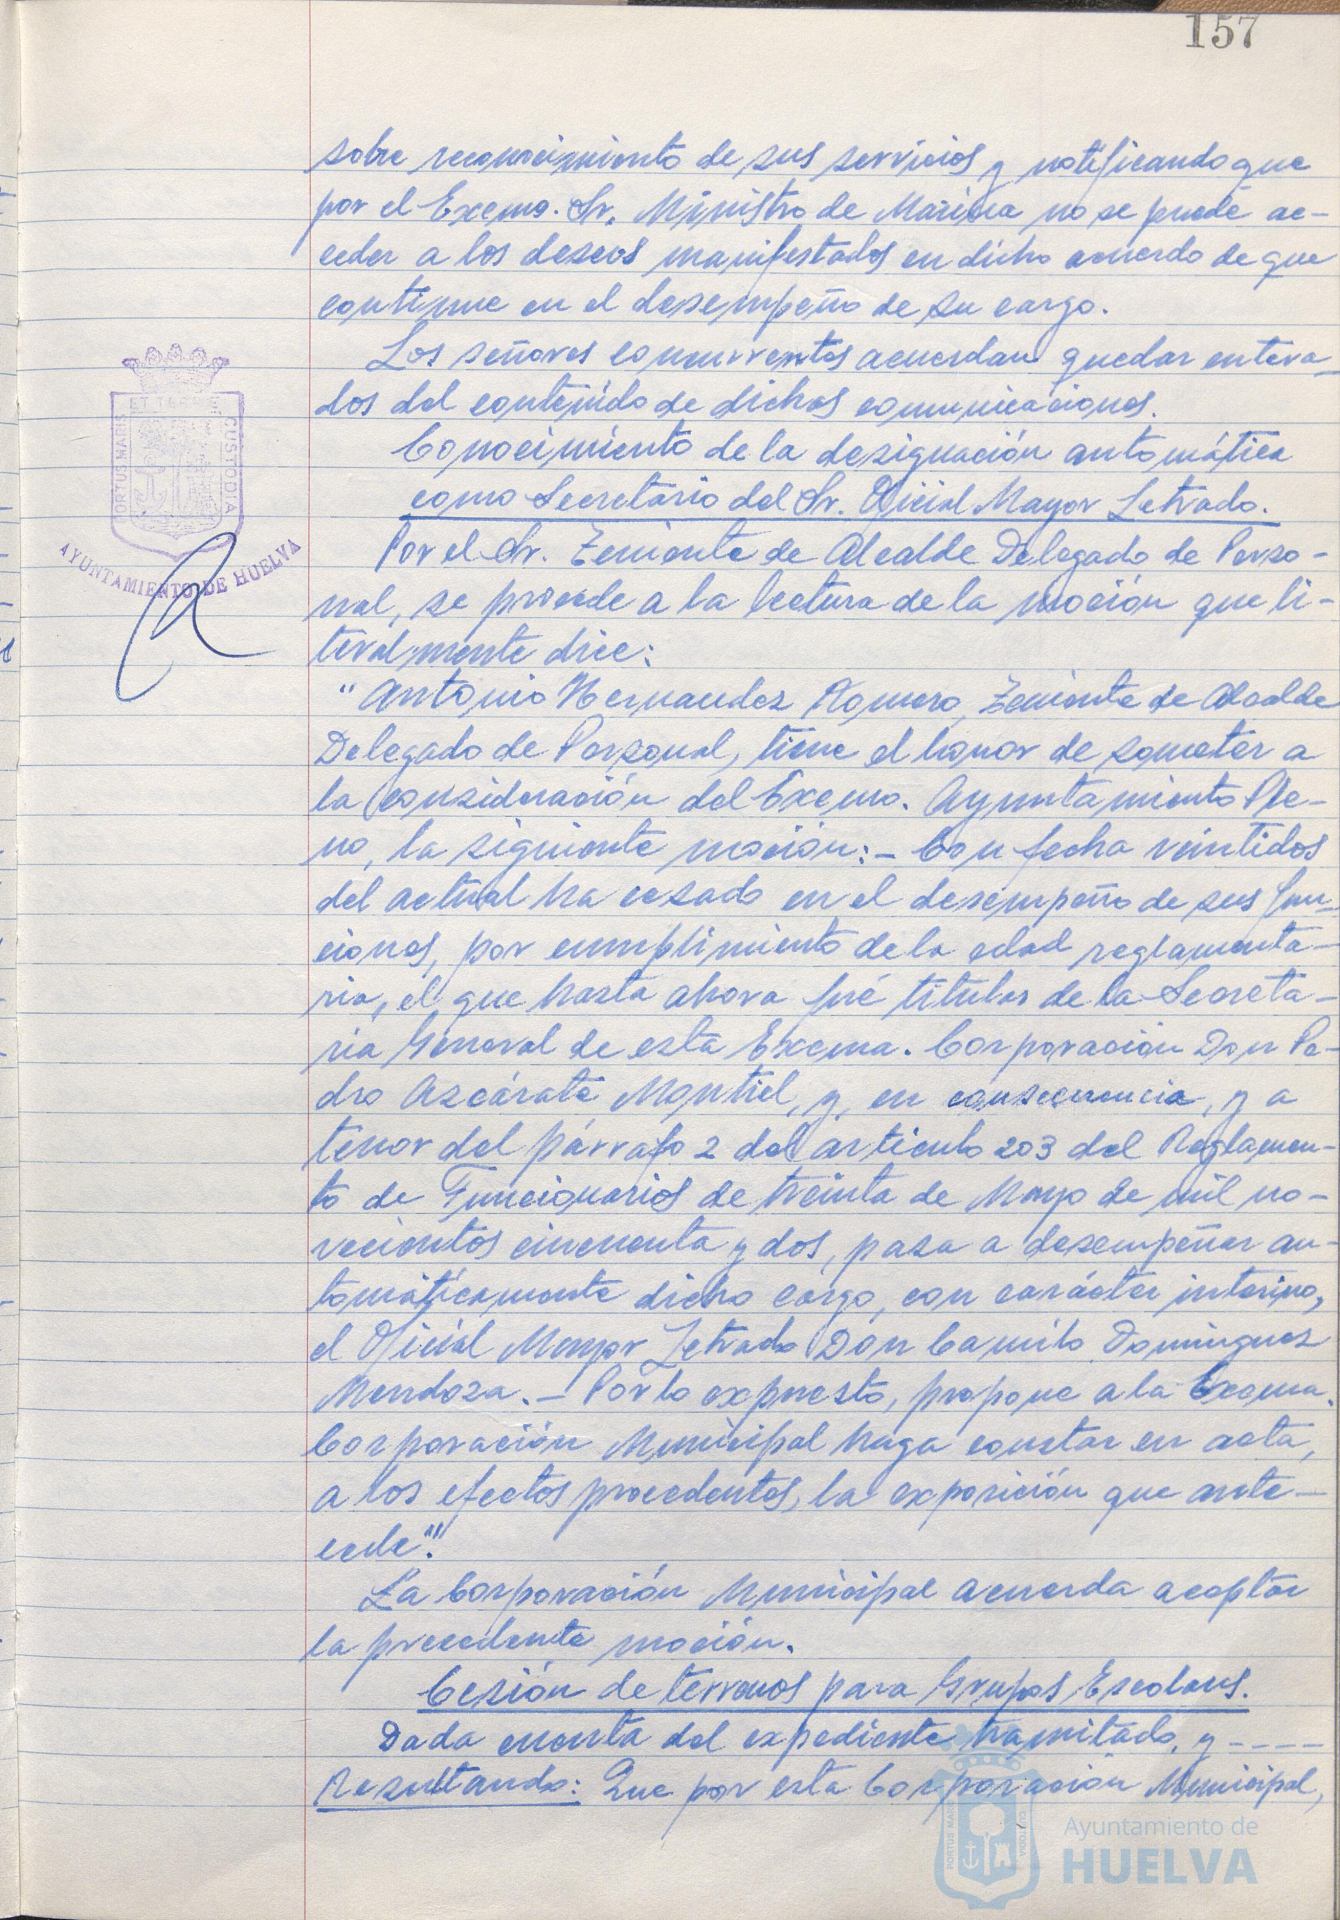 157
sobre reconocimiento de sus servicios y notificando que
por el Excmo. Sr. Ministro de Marina no se puede ac-
ceder a los deseos manifestados en dicho acuerdo de que
continue en el desempeño de su cargo.
Los señores concurrentes acuerdan quedar entera-
dos del contenido de dichas comunicaciones.
Conocimiento de la designación automática
como Secretario del Sr. Oficial Mayor Letrado.
Por el Sr. Teniente de Alcalde Delegado de Perso-
nal, se procede a la lectura de la moción que li-
teralmente dice:
"Antonio Hernandez Romero, Teniente de Alcalde
Delegado de Personal, tiene el honor de someter a
la consideración del Excmo. Ayuntamiento Ple-
no, la siguiente moción:- Con fecha veintidos
del actual ha cesado en el desempeño de sus fun-
ciones, por cumplimiento de la edad reglamenta-
ria, el que hasta ahora fué titular de la Secreta-
ría General de esta Excma. Corporación Don Pe-
dro Azcárate Montiel, y, en consecuencia, y a
tenor del párrafo 2 del artículo 203 del Reglamen-
to de Funcionarios de treinta de Mayo de mil no-
vecientos cincuenta y dos, pasa a desempeñar au-
tomáticamente dicho cargo, con carácter interino,
el Oficial Mayor Letrado Don Camilo Dominguez
Mendoza.- Por lo expuesto, propone a la Excma.
Corporación Municipal haga constar en acta,
a los efectos procedentes, la exposición que ante-
cede".
La Corporación Municipal acuerda aceptar
la precedente moción.
Cesión de terrenos para Grupos Escolares.
Dada cuenta del expediente tramitado, y ----
Resultando: Que por esta Corporación Municipal,
PORTUS MARIS
ET TERRE
CUSTODIA
AYUNTAMIENTO DE HUELVA
PORTUS MARIS
CUSTODIA
Ayuntamiento de
HUELVA